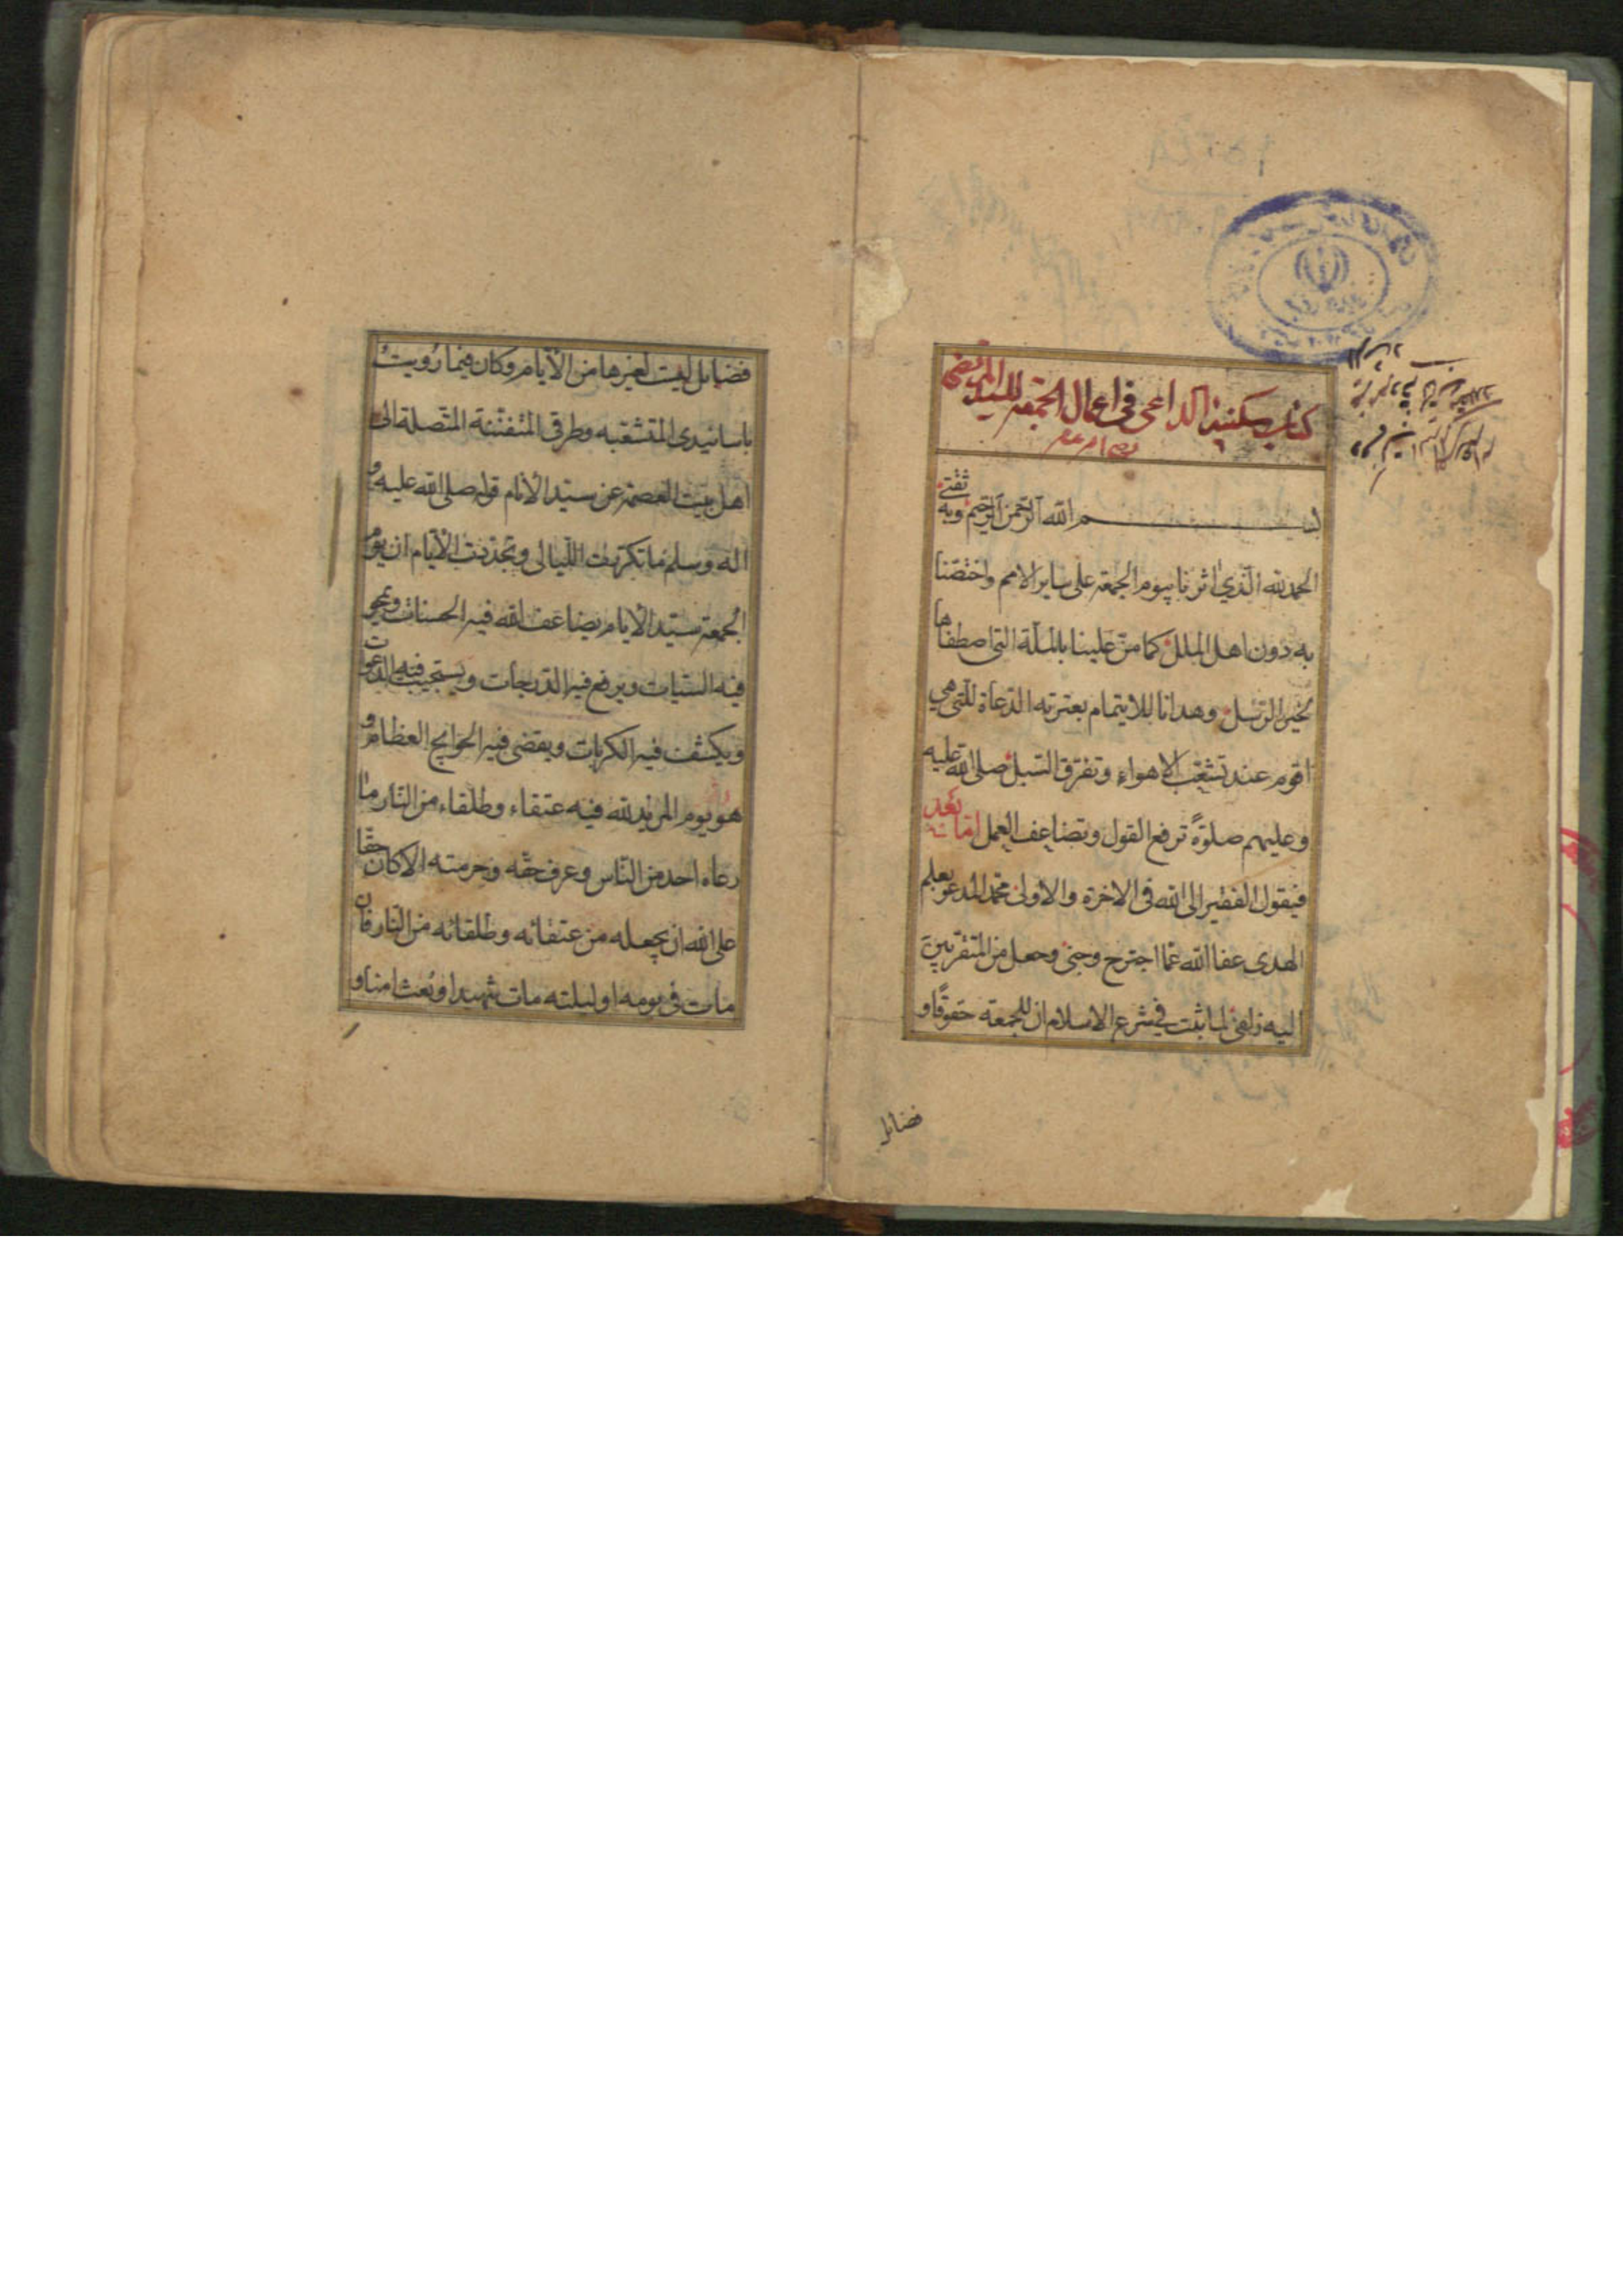 كتاب سكينة الداعى فى اعمال الجمعه للسيد المرتضى
بسم الله الرحمن الرحيم وبه ثقتى
الحمد لله الذي اثرنا بيوم الجمعة على ساير الامم واختصنا
به دون اهل الملل كما منّ علينا بالملّة التى اصطفاها
لخير الرسل وهدانا للايتمام بعترته الدعاة للّتى هي
اقوم عند تشعّب الاهواء وتفرّق السّبل صلى الله عليه
وعليهم صلوةً ترفع القول وتضاعف العمل امّا بعد
فيقول الفقير الى الله فى الاخرة والاولى محمد المدعو بعلم
الهدى عفا الله عمّا اجترح وجنى وجعل من المتقرّبين
اليه زلفى لما ثبت في شرع الاسلام ان للجمعة حقوقًا و
فضايل
فضايل ليست لغيرها من الأيام وكان فيما رُويتُ
باسانيدى المتشعّبه وطرقى المتفنّنة المتّصلة الى
اهل بيت العصمة عن سيّد الأنام قوله صلى الله عليه و
اله وسلم ما تكرّرت اللّيالى وتجدّدت الأيام ان يوم
الجمعة سيّد الأيام يضاعف الله فيه الحسنات ويمحو
فيه السّيّات ويرفع فيه الدّرجات ويستجيب فيه الدعوات
ويكشف فيه الكربات ويقضى فيه الحوايج العظام و
هو يوم المزيد لله فيه عتقاء وطلقاء من النّار ما
رعاه احد من النّاس وعرف حقّه وحرمته الا كان حقّا
على الله ان يجعله من عتقائه وطلقائه من النّار فان
مات فى يومه او ليلته مات شهيدا وبُعث امنا و